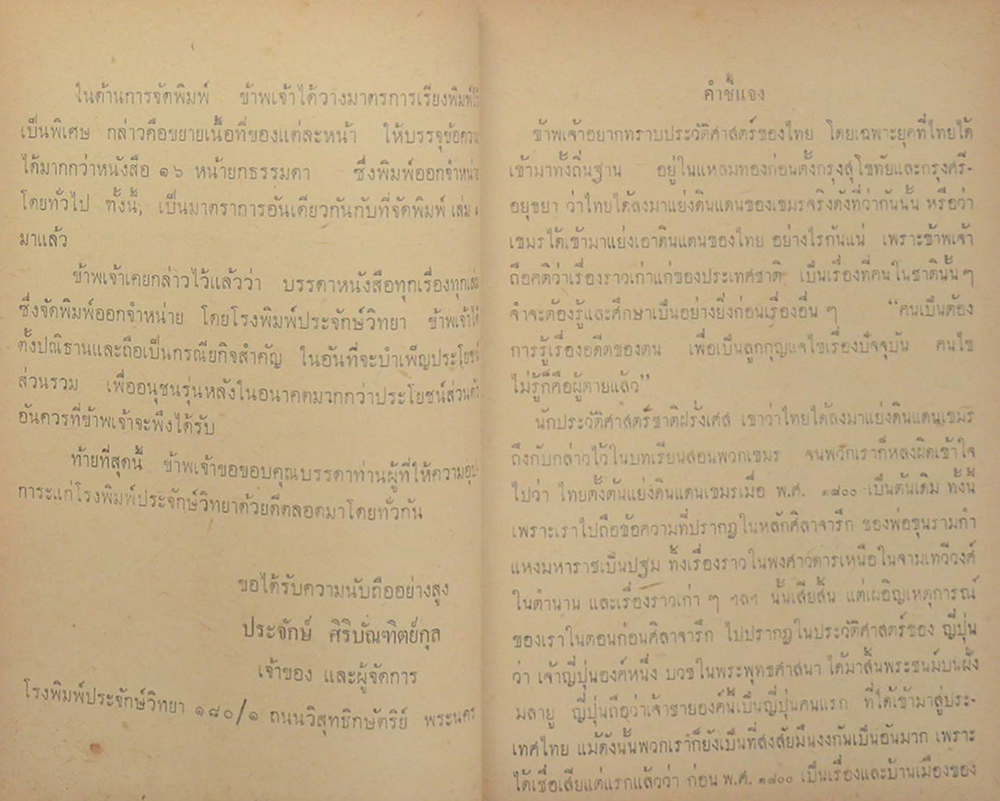 ในด้านการจัดพิมพ์ ข้าพเจ้าได้วางมาตรการเรียงพิมพ์
เป็นพิเศษ กล่าวคือขยายเนื้อที่ของแต่ละหน้า ให้บรรจุข้อความ
ได้มากกว่าหนังสือ ๑๖ หน้ายกธรรมดา ซึ่งพิมพ์ออกจำหน่าย
โดยทั่วไป ทั้งนี้, เป็นมาตราการอันเดียวกันกับที่จัดพิมพ์ เล่ม
มาแล้ว
ข้าพเจ้าเคยกล่าวไว้แล้วว่า บรรดาหนังสือทุกเรื่องทุกเล่ม
ซึ่งจัดพิมพ์ออกจำหน่าย โดยโรงพิมพ์ประจักษ์วิทยา ข้าพเจ้าได้
ตั้งปณิธานและถือเป็นกรณียกิจสำคัญ ในอันที่จะบำเพ็ญประโยชน์
ส่วนรวม เพื่ออนุชนรุ่นหลังในอนาคตมากกว่าประโยชน์ส่วนตัว
อันควรที่ข้าพเจ้าจะพึงได้รับ
ท้ายที่สุดนี้ ข้าพเจ้าขอขอบคุณบรรดาท่านผู้ที่ให้ความอุป-
การะแก่โรงพิมพ์ประจักษ์วิทยาด้วยดีตลอดมาโดยทั่วกัน
ขอได้รับความนับถืออย่างสูง
ประจักษ์ ศิริบัณฑิตย์กุล
เจ้าของ และผู้จัดการ
โรงพิมพ์ประจักษ์วิทยา ๑๘๐/๑ ถนนวิสุทธิกษัตริย์ พระนคร
คำชี้แจง
ข้าพเจ้าอยากทราบประวัติศาสตร์ของไทย โดยเฉพาะยุคที่ไทยได้
เข้ามาทั้งถิ่นฐาน อยู่ในแหลมทองก่อนตั้งกรุงสุโขทัยและกรุงศรี-
อยุธยา ว่าไทยได้ลงมาแย่งดินแดนของเขมรจริงดังที่ว่ากันนั้น หรือว่า
เขมรได้เข้ามาแย่งเอาดินแดนของไทย อย่างไรกันแน่ เพราะข้าพเจ้า
ถือคติว่าเรื่องราวเก่าแก่ของประเทศชาติ เป็นเรื่องที่คนในชาตินั้น ๆ
จำจะต้องรู้และศึกษาเป็นอย่างยิ่งก่อนเรื่องอื่น ๆ “คนเป็นต้อง
การรู้เรื่องอดีตของตน เพื่อเป็นลูกกุญแจไขเรื่องปัจจุบัน คนใช
ไม่รู้ก็คือผู้ตายแล้ว”
นักประวัติศาสตร์ชาติฝรั่งเศส เขาว่าไทยได้ลงมาแย่งดินแดนเขมร
ถึงกับกล่าวไว้ในบทเรียนสอนพวกเขมร จนพวกเราก็หลงผิดเข้าใจ
ไปว่า ไทยตั้งต้นแย่งดินแดนเขมรเมื่อ พ.ศ. ๑๘๐๐ เป็นต้นเดิม ทั้งนี้
เพราะเราไปถือข้อความที่ปรากฏในหลักศิลาจารึก ของพ่อขุนรามกำ
แหงมหาราชเป็นปฐม ทั้งเรื่องราวในพงศาวดารเหนือในจามเทวีวงศ์
ในตำนาน และเรื่องราวเก่า ๆ ฯลฯ นั้นเสียสิ้น แต่เผอิญเหตุการณ์
ของเราในตอนก่อนศิลาจารึก ไปปรากฏในประวัติศาสตร์ของ ญี่ปุ่น
ว่า เจ้าญี่ปุ่นองค์หนึ่ง บวชในพระพุทธศาสนา ได้มาสิ้นพระชนม์บนฝั่ง
มลายู ญี่ปุ่นถือว่าเจ้าชายองค์นี้เป็นญี่ปุ่นคนแรก ที่ได้เข้ามาสู่ประ-
เทศไทย แม้ดังนั้นพวกเราก็ยังเป็นที่สงสัยมึนงงกันเป็นอันมาก เพราะ
ได้เชื่อเสียแต่แรกแล้วว่า ก่อน พ.ศ. ๑๘๐๐ เป็นเรื่องและบ้านเมืองของ